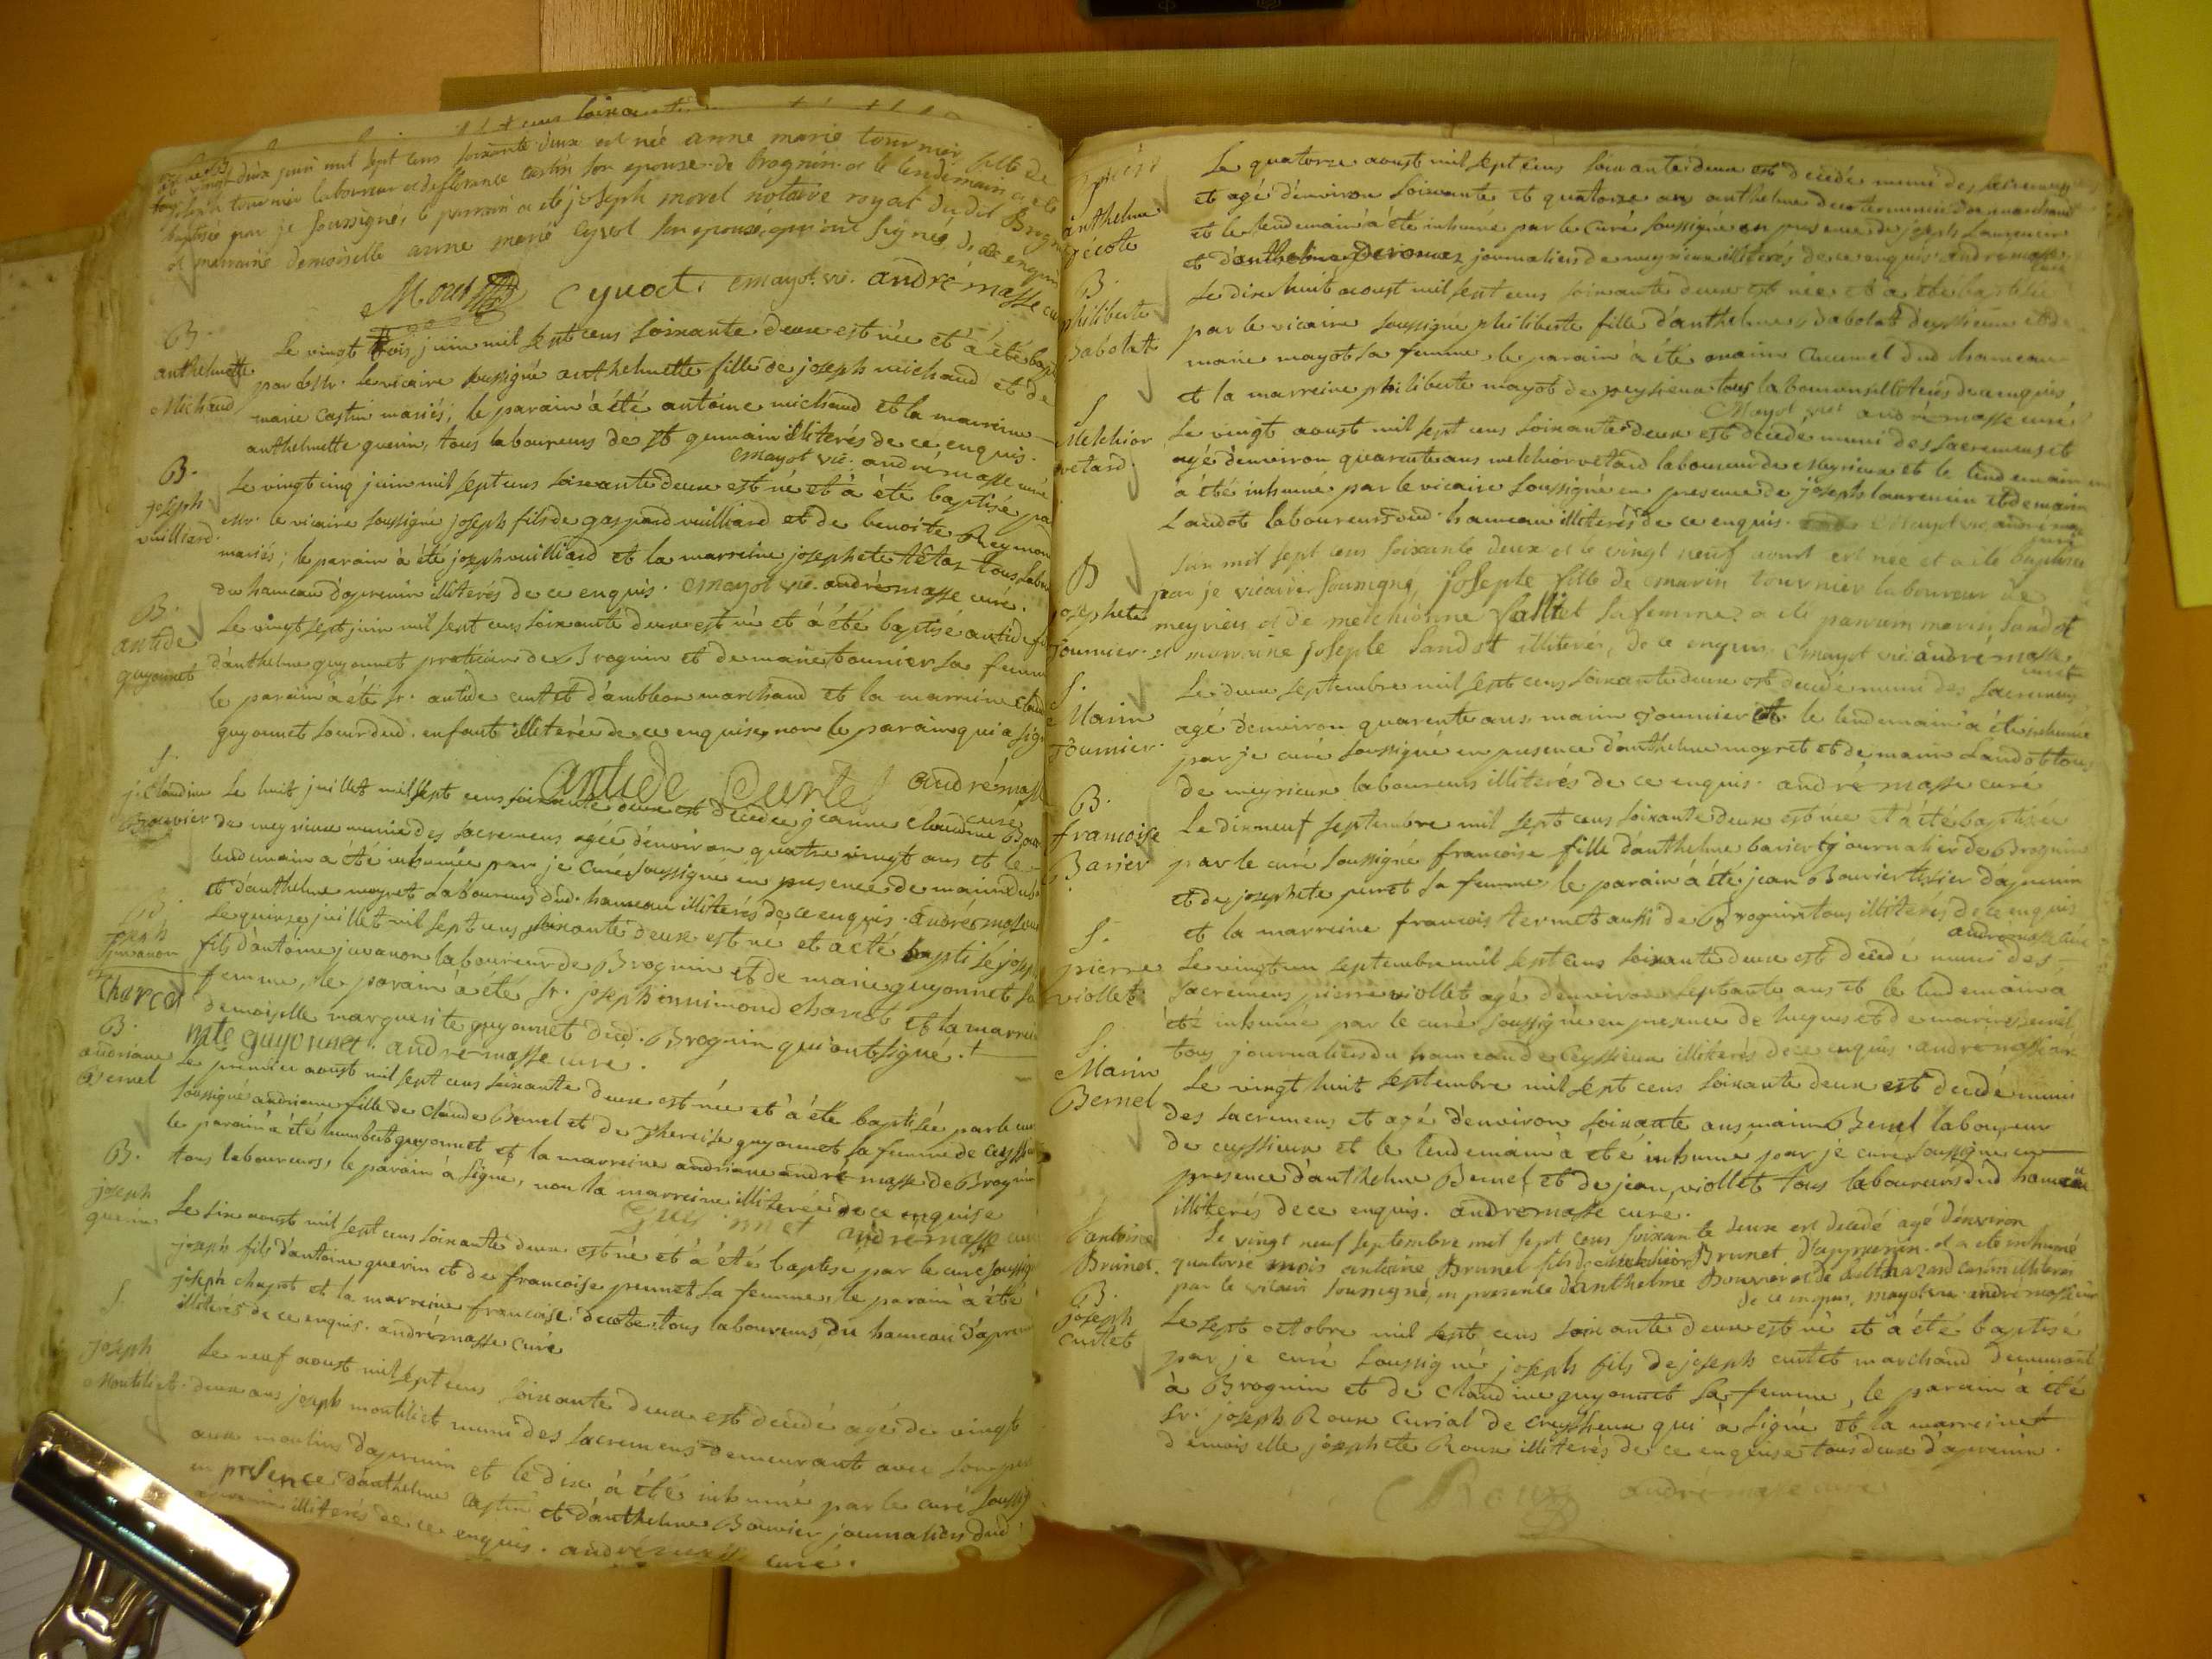 cens soixante
vingt deux juin mil sept cens soixante deux est née anne marie tournier fille de
joseph tournier laboureur et de florance castin son epouse de brognin et le lendemain a été
baptisée par je soussigné, le parrain a été joseph morel notaire royal dudit
et marraine demoiselle anne marie cyvoct son epouse, qui ont signés de ce enquis
Morel cyvoct mayot vic. andré masse curé
B.
anthelmette
Michaud
Le vingt trois juin mil sept cens soixante deux est née et à été
par Mr. le vicaire soussigné anthelmette fille de joseph michaud et de
marie castin mariés; le parain à été antoine michaud et la marreine
anthelmette guerin, tous laboureurs de st germain illiterés de ce enquis.
mayot vic. andré masse curé
B.
joseph
vuilliard
Le vingt cinq juin mil sept cens soixante deux est né et à été baptisé
Mr. le vicaire soussigné joseph fils de gaspard vuilliard et de benoite Reymond
mariés; le parain à été joseph vuilliard et la marreine josephete têtaz tous
du hameau d'apremin illiterés de ce enquis. mayot vic. andré masse curé.
B.
antide
guyonnet
Le vingt sept juin mil sept cens soixante deux est né et à été baptisé antide
d'anthelme guyonnet praticien de Brognin et de marie tournier sa femme
le parain à été sr. antide curtet d'ambleon marchand et la marreine
guyonnet soeur dud. enfant illiterée de ce enquise, non le parain qui a signé
antide Curtet andré masse curé
S.
j. Claudine
Bouvier
Le huit juillet mil sept cens soixante deux est decedée jeanne claudine
de meyrieux munie des sacremens agée d'environ quatre vingt ans et le
lendemain a été inhumée par je curé soussigné en presence de marin
et d'anthelme moyret laboureurs dud. hameau illiterés de ce enquis. andré masse curé
B.
joseph
juvanon
Le quinze juillet mil sept cens soixante deux est né et a été baptisé joseph
fils d'antoine juvanon laboureur de Brognin et de marie guyonnet sa
femme, le parain à été sr. joseph innimond charcot et la marreine
demoiselle marguerite guyonnet dud. Brognin qui ont signé.
charcot
mte guyonnet. andré masse curé.
B.
andriane
Bernel
Le premier aoust mil sept cens soixante deux est née et à été baptisée par le curé
soussigné andriane fille de claude Bernel et de therese guyonnet sa femme de
le parain à été humbert guyonnet et la marreine andriane andré masse de Brognin
tous laboureurs, le parain à signé, non la marreine illiterée de ce enquise
guyonnet andré masse curé
B.
joseph
guerin
Le six aoust mil sept cens soixante deux est né et à été baptisé par le curé soussigné
joseph fils d'antoine guerin et de francoise peunet sa femme, le parain à été
joseph chapot et la marreine francoise decote tous laboureurs du hameau d'apremin
illiterés de ce enquis. andré masse curé
S.
joseph
Montiliet
Le neuf aoust mil sept cens soixante deux est decedé agé de vingt
deux ans joseph montiliet muni des sacremens demeurant avec son pere
aux moulins d'apremin et le dix à été inhumé par le curé soussigné
en presence d'anthelme castin et d'anthelme Bouvier journaliers dud
illiterés de ce enquis. andré masse curé.
anthelme
décote
Le quatorze aoust mil sept cens soixante deux est decedé muni des sacremens
et agé d'environ soixante et quatorze ans anthelme
et le lendemain à été inhumé par le curé soussigné en presence de joseph Laurencin
et d'anthelme journaliers de meyrieux illiterés de ce enquis. andré masse
curé
B.
philiberte
Babolat
Le dix huit aoust mil sept cens soixante deux est née et à été baptisée
par le vicaire soussigné philiberte fille d'anthelme Babolat de et de
marie mayot sa femme, le parain à été marin dud hameau
et la marreine philiberte mayot de peyzieux tous laboureurs illiterés de ce enquis
Mayot vic. andré masse curé
S.
Melchior
vetard.
Le vingt aoust mil sept cens soixante deux est decedé muni des sacremens et
agé d'environ quarante ans melchior vetard laboureur de Meyrieux et le lendemain
à été inhumé par le vicaire soussigné en presence de joseph laurencin et de marin
Landot laboureurs dud. hameau illiterés de ce enquis. Mayot vic. andré masse
curé
B
josephete
Tournier
L'an mil sept cens soixante deux et le vingt neuf aoust est née et a été baptisée
par je vicaire soussigné, josepte fille de marin tournier laboureur de
meyrieu et de melchionne Salliet sa femme, a été parrain marin Landot
et marraine josepte Landot illiterés, de ce enquis. Mayot vic. andré masse
curé
S.
Marin
Tournier.
Le deux septembre mil sept cens soixante deux est decedé muni des sacremens
agé d'environ quarente ans marin Tournier et le lendemain à été inhumé
par je curé soussigné en presence d'anthelme moyret et de marin Landot tous
de meyrieux laboureurs illiterés de ce enquis. andré masse curé
B.
francoise
Barier
Le dix neuf septembre mil sept cens soixante deux est née et à été baptisée
par le curé soussigné francoise fille d'anthelme barier journalier de Brognin
et de josephete peunet sa femme, le parain à été jean Bouvier tixier d'apremin
et la marreine francois termet aussi de Brognin tous illiterés de ce enquis
andré masse curé
S.
pierre
viollet
Le vingt un septembre mil sept cens soixante deux est decedé muni des
sacremens pierre viollet agé d'environ septante ans et le lendemain a
été inhumé par le curé soussigné en presence de hugues et de marin Bernel
tous journaliers du hameau de Ceyssieux illiterés de ce enquis. andré masse curé
S.
Marin
Bernel
Le vingt huit septembre mil sept cens soixante deux est decedé muni
des sacremens et agé d'environ soixante ans marin Bernel laboureur
de ceyssieux et le lendemain à été inhumé par je curé soussigné en
presence d'anthelme Bernel et de jean viollet tous laboureurs dud hameau
illiterés de ce enquis. andré masse curé.
antoine
Brunet.
Le vingt neuf septembre mil sept cens soixante deux est decedé agé d'environ
quatorze mois antoine Brunet fils de melchior Brunet d'appremin. et a été inhumé
par le vicaire soussigné, en presence d'anthelme Bouvier et de balthazard castin illiterés
de ce enquis. mayot vic. andré masse curé
B.
Joseph
Curtet
Le sept octobre mil sept cens soixante deux est né et à été baptisé
par je curé soussigné joseph fils de joseph curtet marchand demeurant
à Brognin et de claudine guyonnet sa femme, le parain à été
sr. joseph Roux curial de creyssieux qui à signé et la marreine
demoiselle josephete Roux illiterés de ce enquise tous deux d'apremin.
Roux andré masse curé